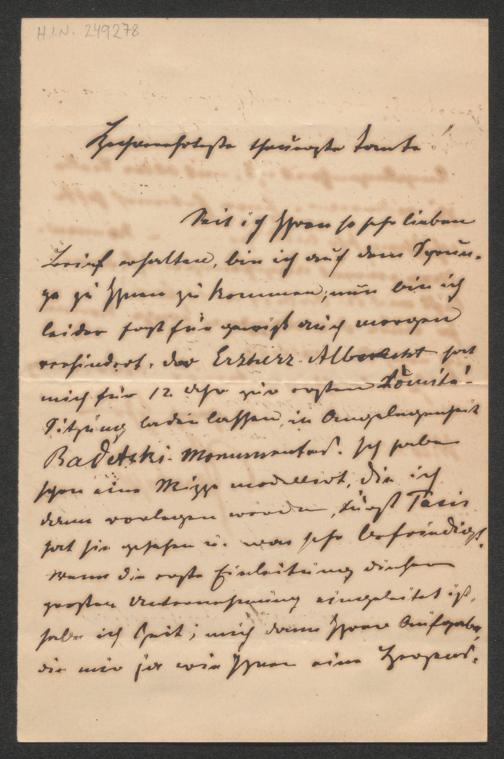 H.I.N. 249278
Hochverehrteste theuerste Tante!
Seit ich Ihren so sehr lieben
Brief erhalten, bin ich auf dem Sprun-
ge zu Ihnen zu kommen, nun bin ich
leider fast für gewiß auch morgen
verhindert. Der Erzherz. Albrecht hat
mich für 12 Uhr zur ersten Komité-
Sitzung laden lassen, in Angelegenheit
Radetzki-Monumentes. Ich habe
schon eine Skizze modellirt, die ich
dann vorlegen werde, Fürst Taxis
hat sie gesehen u. war sehr befriedigt.
Wenn die erste Einleitung dieser
großen Unternehmung eingeleitet ist,
habe ich Zeit, mich dann Ihrer Aufgabe,
die mir ja wie Ihnen eine Herzens-